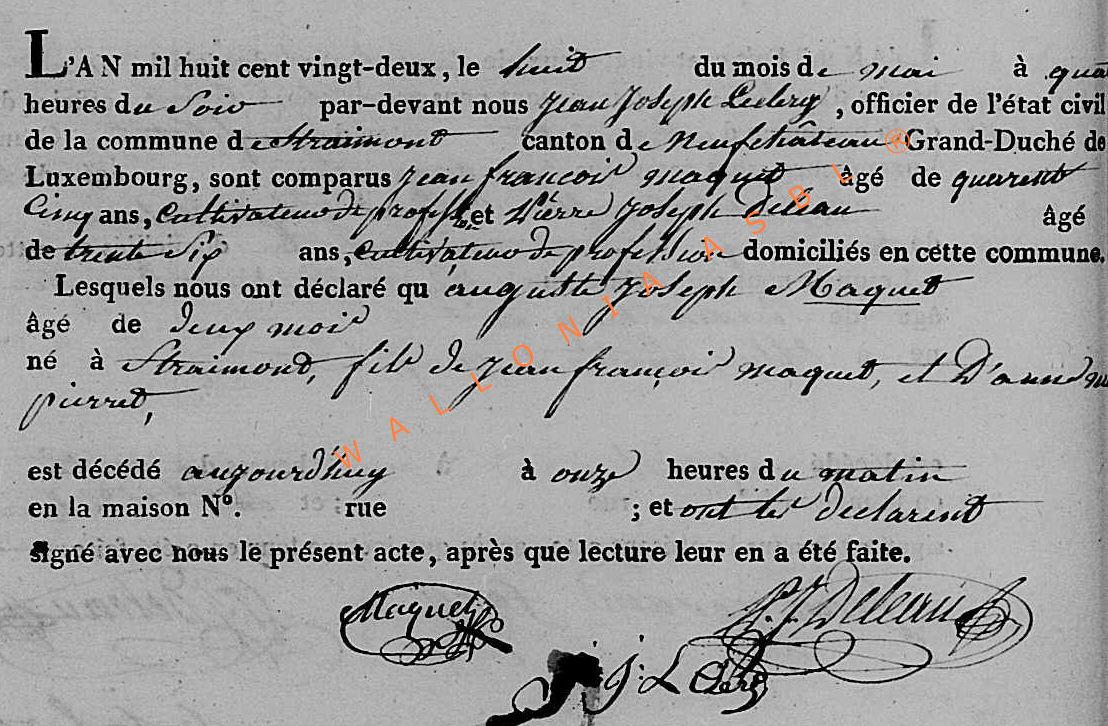 L'AN mil huit cent vingt-deux, le huit du mois de mai à qua
heures du Soir par-devant nous Jean Joseph Leclerq, officier de l'état civil
de la commune de Straimont canton de Neufchâteau Grand-Duché de
Luxembourg, sont comparus jean françois maquet âgé de quarent
Cinq ans, Cultivateur de profess. et Pierre Joseph Deleau âgé
de trente Six ans, Cultivateur de profession domiciliés en cette commune.
Lesquels nous ont déclaré qu auguste Joseph Maquet
âgé de deux mois
né à Straimond, fils de jean françois maquet, et D'anne m
pierret,
est décédé aujourd'huy à onze heures du matin
en la maison N°. rue ; et ont les declarent
signé avec nous le présent acte, après que lecture leur en a été faite.
Maquet P. J. Deleau
J. LeClerq
WALLONIA ASBL ®